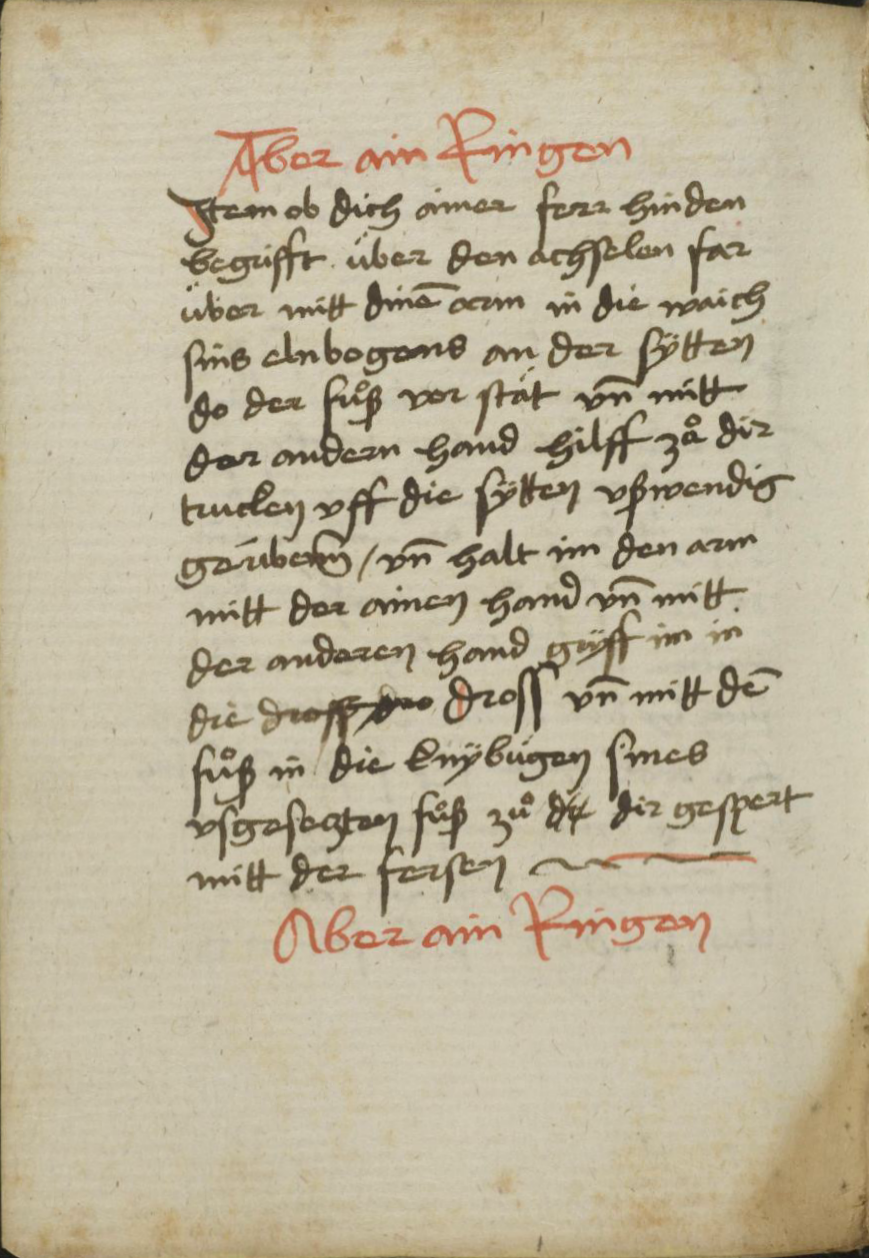 Aber ain Ringen
Item ob dich ainer ferr hinden
begrifft über den achselen far
über mitt dinē arm in die waich
sins elnbogens an der sÿtten
do der fuͦß vor stät vn̄ mitt
der andern hand hilff zuͦ dir
trucken vff die sÿtten vßwendig
vn̄ halt im den arm
mitt der ainen hand vn̄ mitt
der anderen hand gryff im in
die dross vn̄ mitt dē
fuͦß in die knÿbügen sines
vsgesetzten fuͦß zuͦ dir gespert
mitt der fersen
Aber ain Ringen